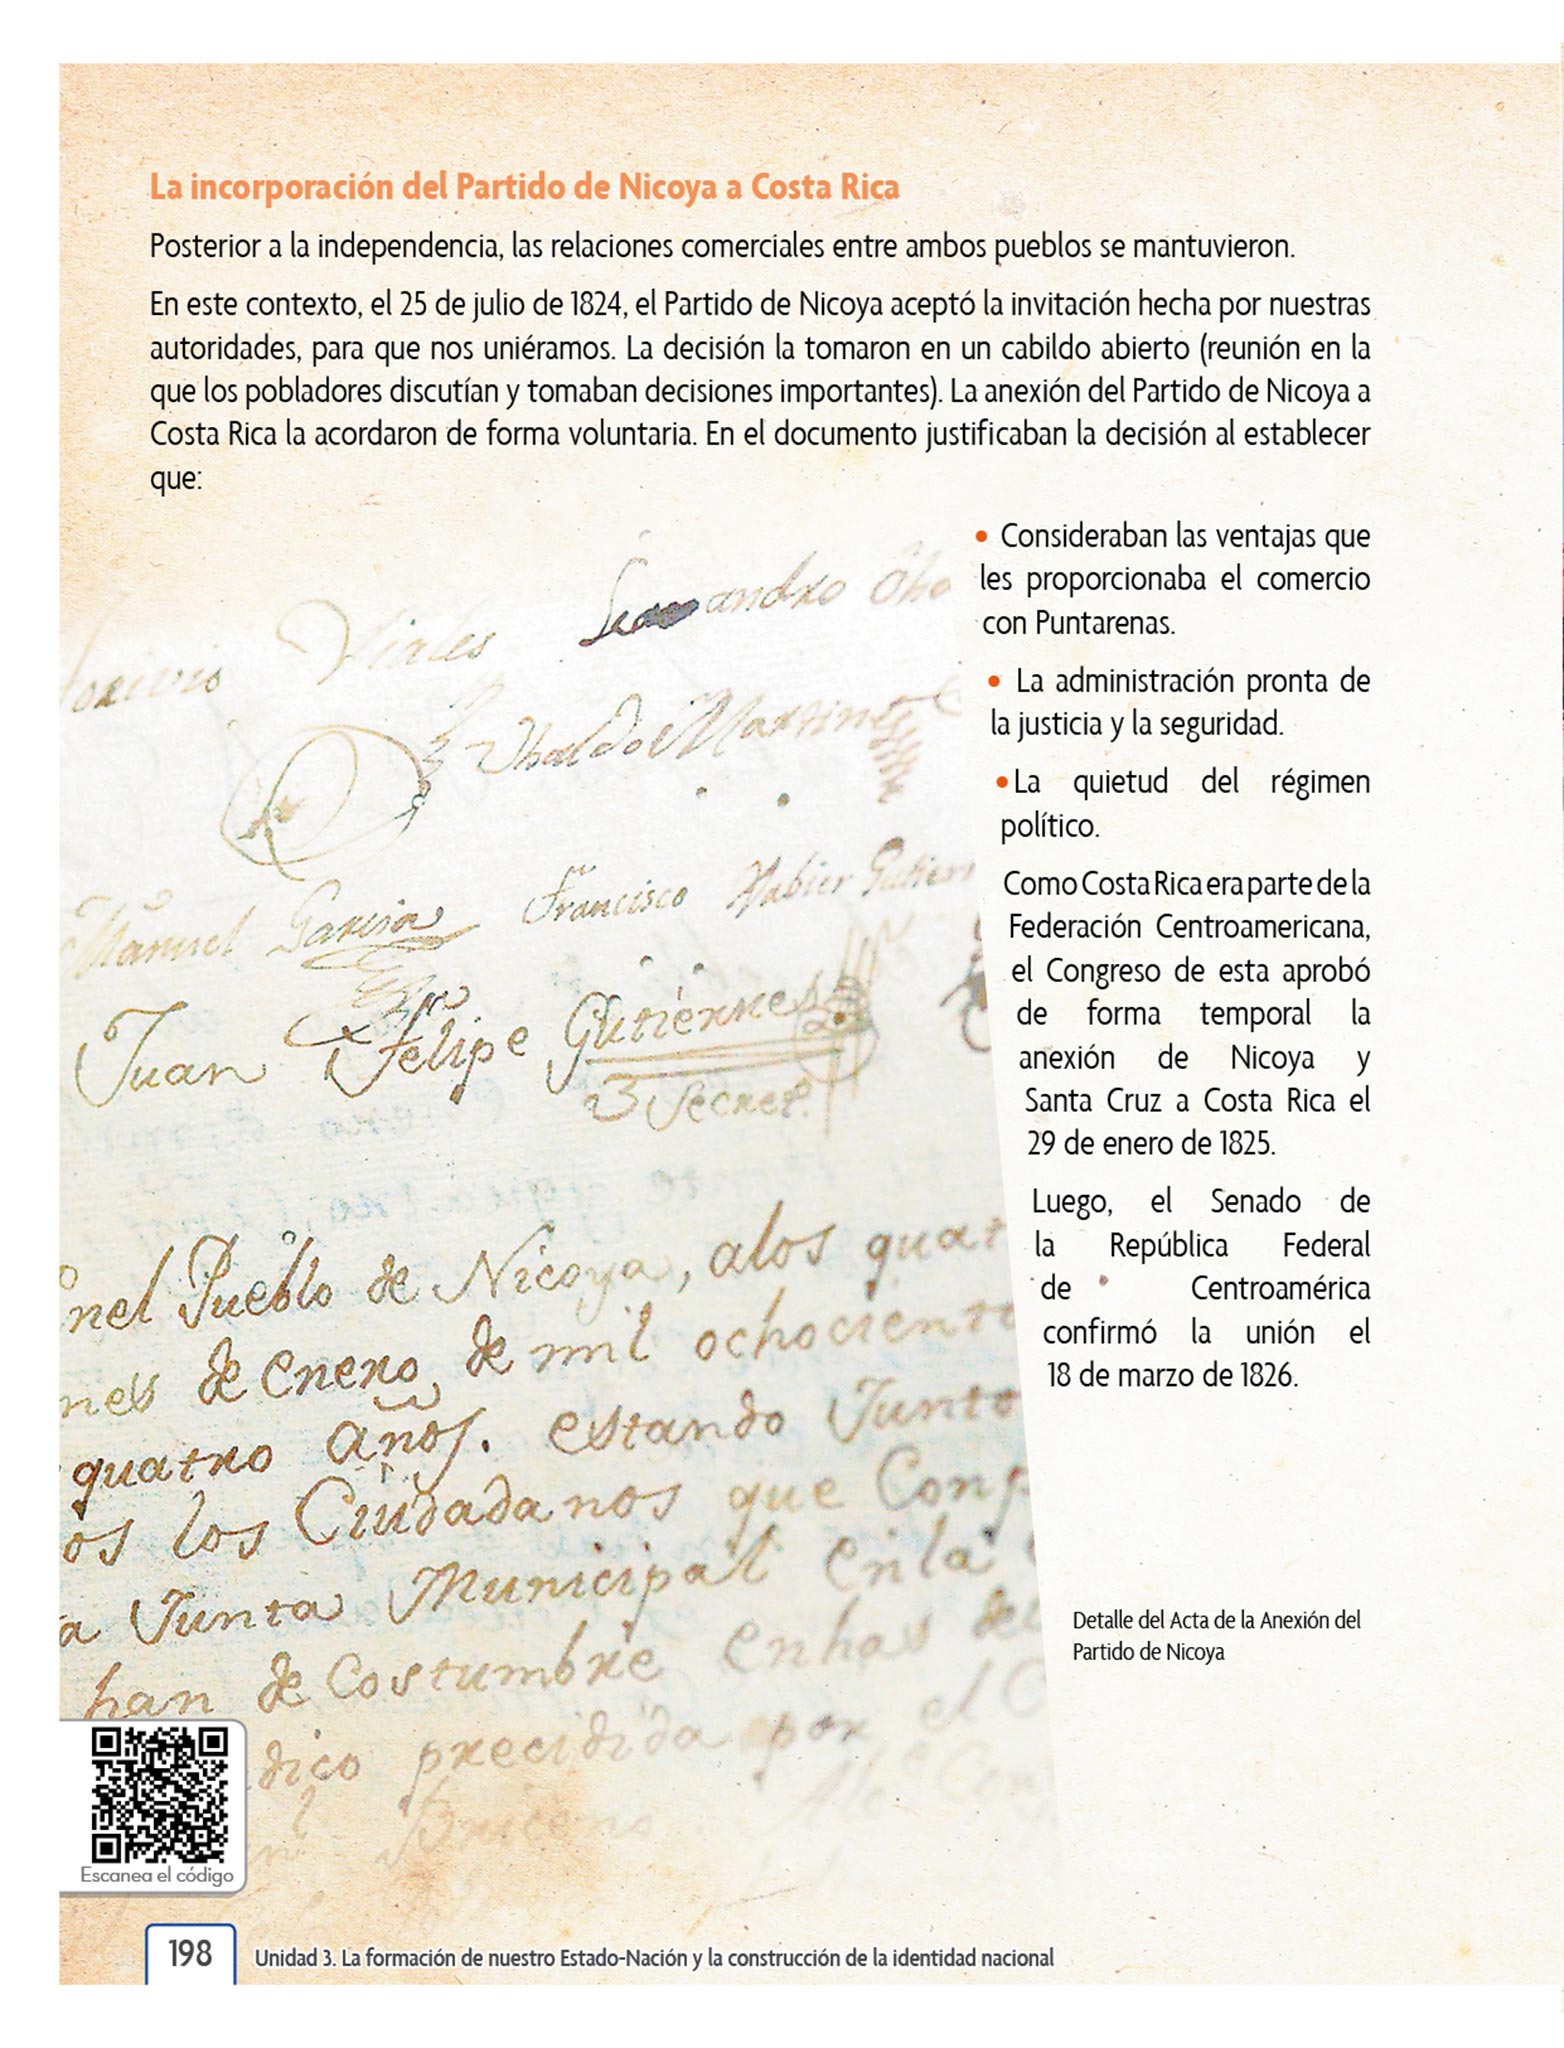 La incorporación del Partido de Nicoya a Costa Rica
Posterior a la independencia, las relaciones comerciales entre ambos pueblos se mantuvieron.
En este contexto, el 25 de julio de 1824, el Partido de Nicoya aceptó la invitación hecha por nuestras
autoridades, para que nos uniéramos. La decisión la tomaron en un cabildo abierto (reunión en la
que los pobladores discutían y tomaban decisiones importantes). La anexión del Partido de Nicoya a
Costa Rica la acordaron de forma voluntaria. En el documento justificaban la decisión al establecer
que:
• Consideraban las ventajas que
les proporcionaba el comercio
con Puntarenas.
• La administración pronta de
la justicia y la seguridad.
• La quietud del régimen
político.
Como Costa Rica era parte de la
Federación Centroamericana,
el Congreso de esta aprobó
de forma temporal la
anexión de Nicoya y
Santa Cruz a Costa Rica el
29 de enero de 1825.
Luego, el Senado de
la República Federal
de Centroamérica
confirmó la unión el
18 de marzo de 1826.
Viales
Ubaldo Martinez
Manuel Garcia Francisco Xabier
Juan Felipe Gutierres
Secret.
nel Pueblo de Nicoya, alos quat
nes de enero de mil ochociento
quatro años. estando Junto
os los Ciudadanos que Comp
a Junta Municipal enla
han de Costumbre enhas de
dico precidida por el C
Detalle del Acta de la Anexión del
Partido de Nicoya
Escanea el código
198
Unidad 3. La formación de nuestro Estado-Nación y la construcción de la identidad nacional